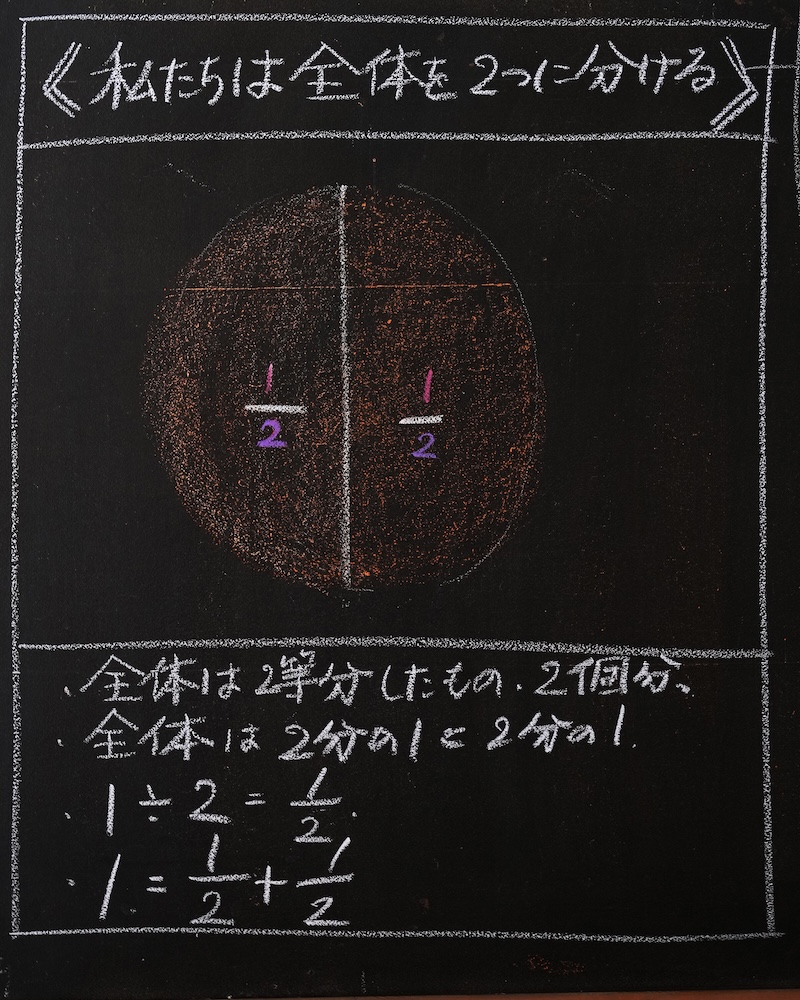 《私たちは全体を2つに分ける》
1/2 1/2
・全体は2等分したもの.2個分、
・全体は2分の1と2分の1.
・1÷2=1/2.
・1=1/2+1/2